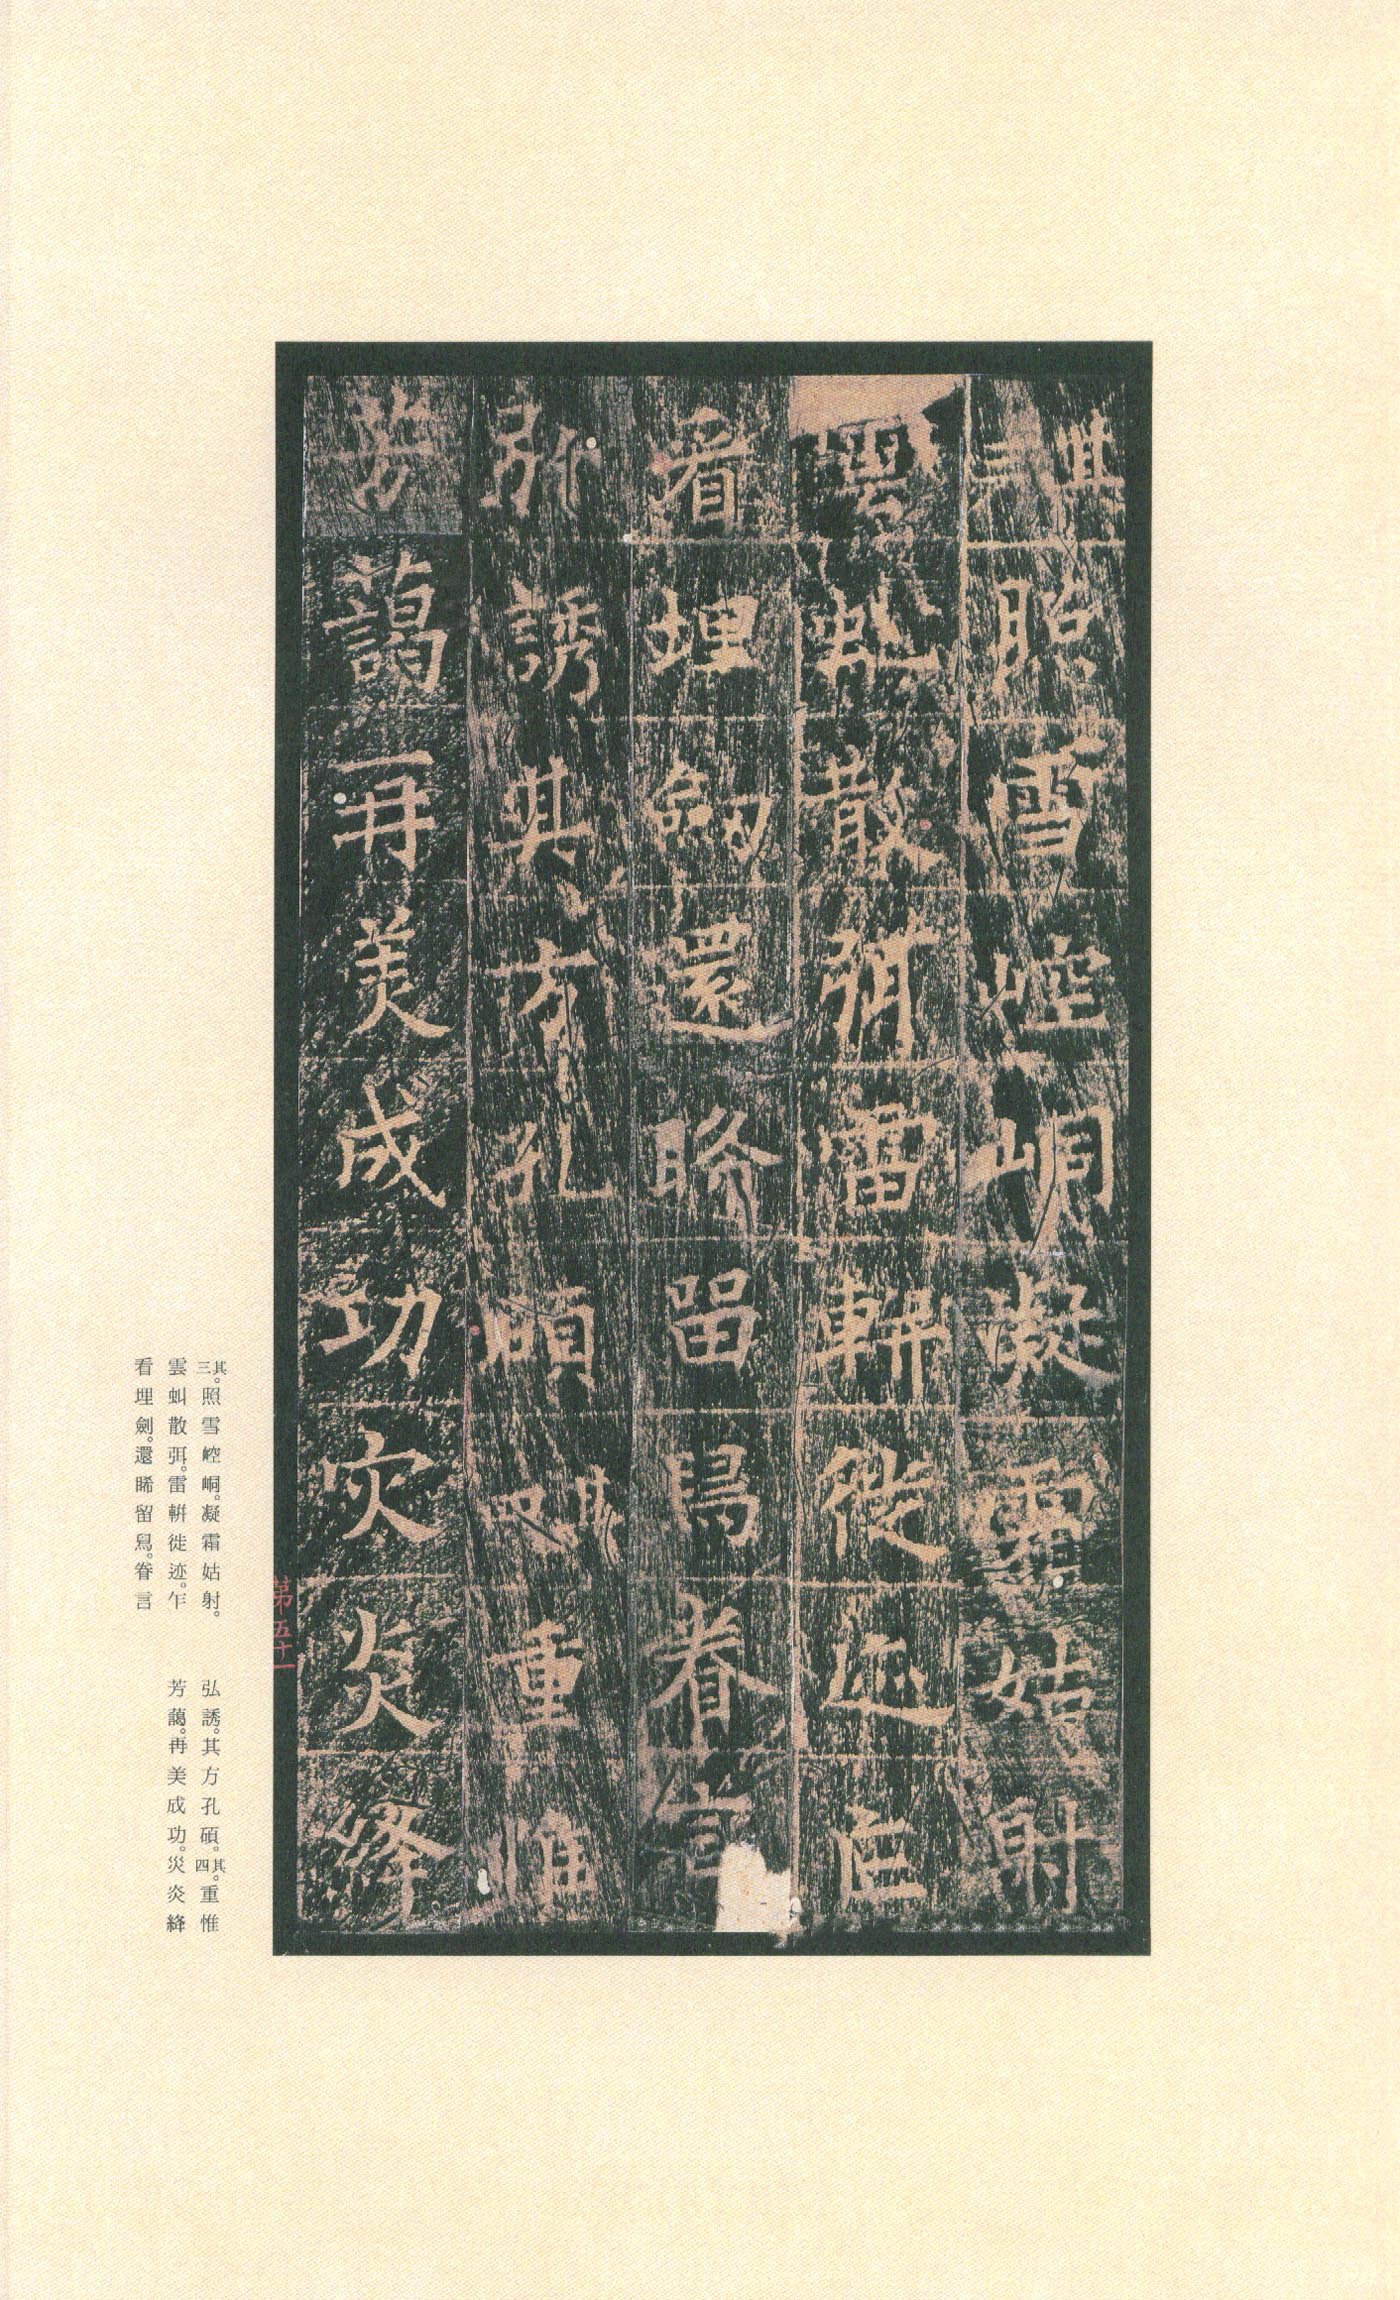 其三照雪崆峒凝霜姑射
雲虯散弭雷輧徙迹乍
看埋劍還睎留舄眷言
弘誘其方孔碩其四重惟
芳藹再美成功災炎絳
第五十一
其三。照雪崆峒。凝霜姑射。
雲虯散弭。雷輧徙迹。乍
看埋劍。還睎留舄。眷言
弘誘。其方孔碩。其四。重惟
芳藹。再美成功。災炎絳